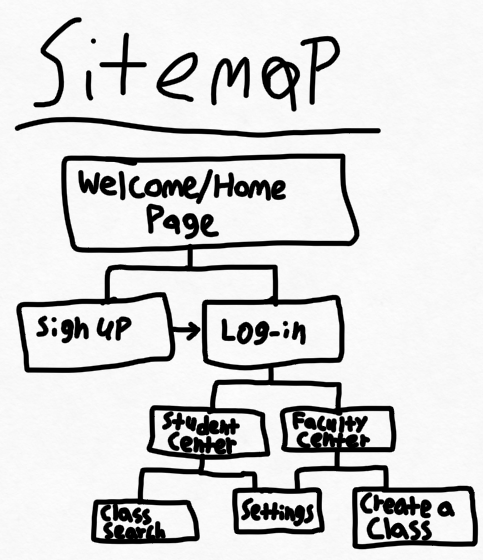 Sitemap
Welcome/Home
Page
Sign UP
Log-in
Student
Center
Faculty
Center
Class
search
Settings
Create a
Class